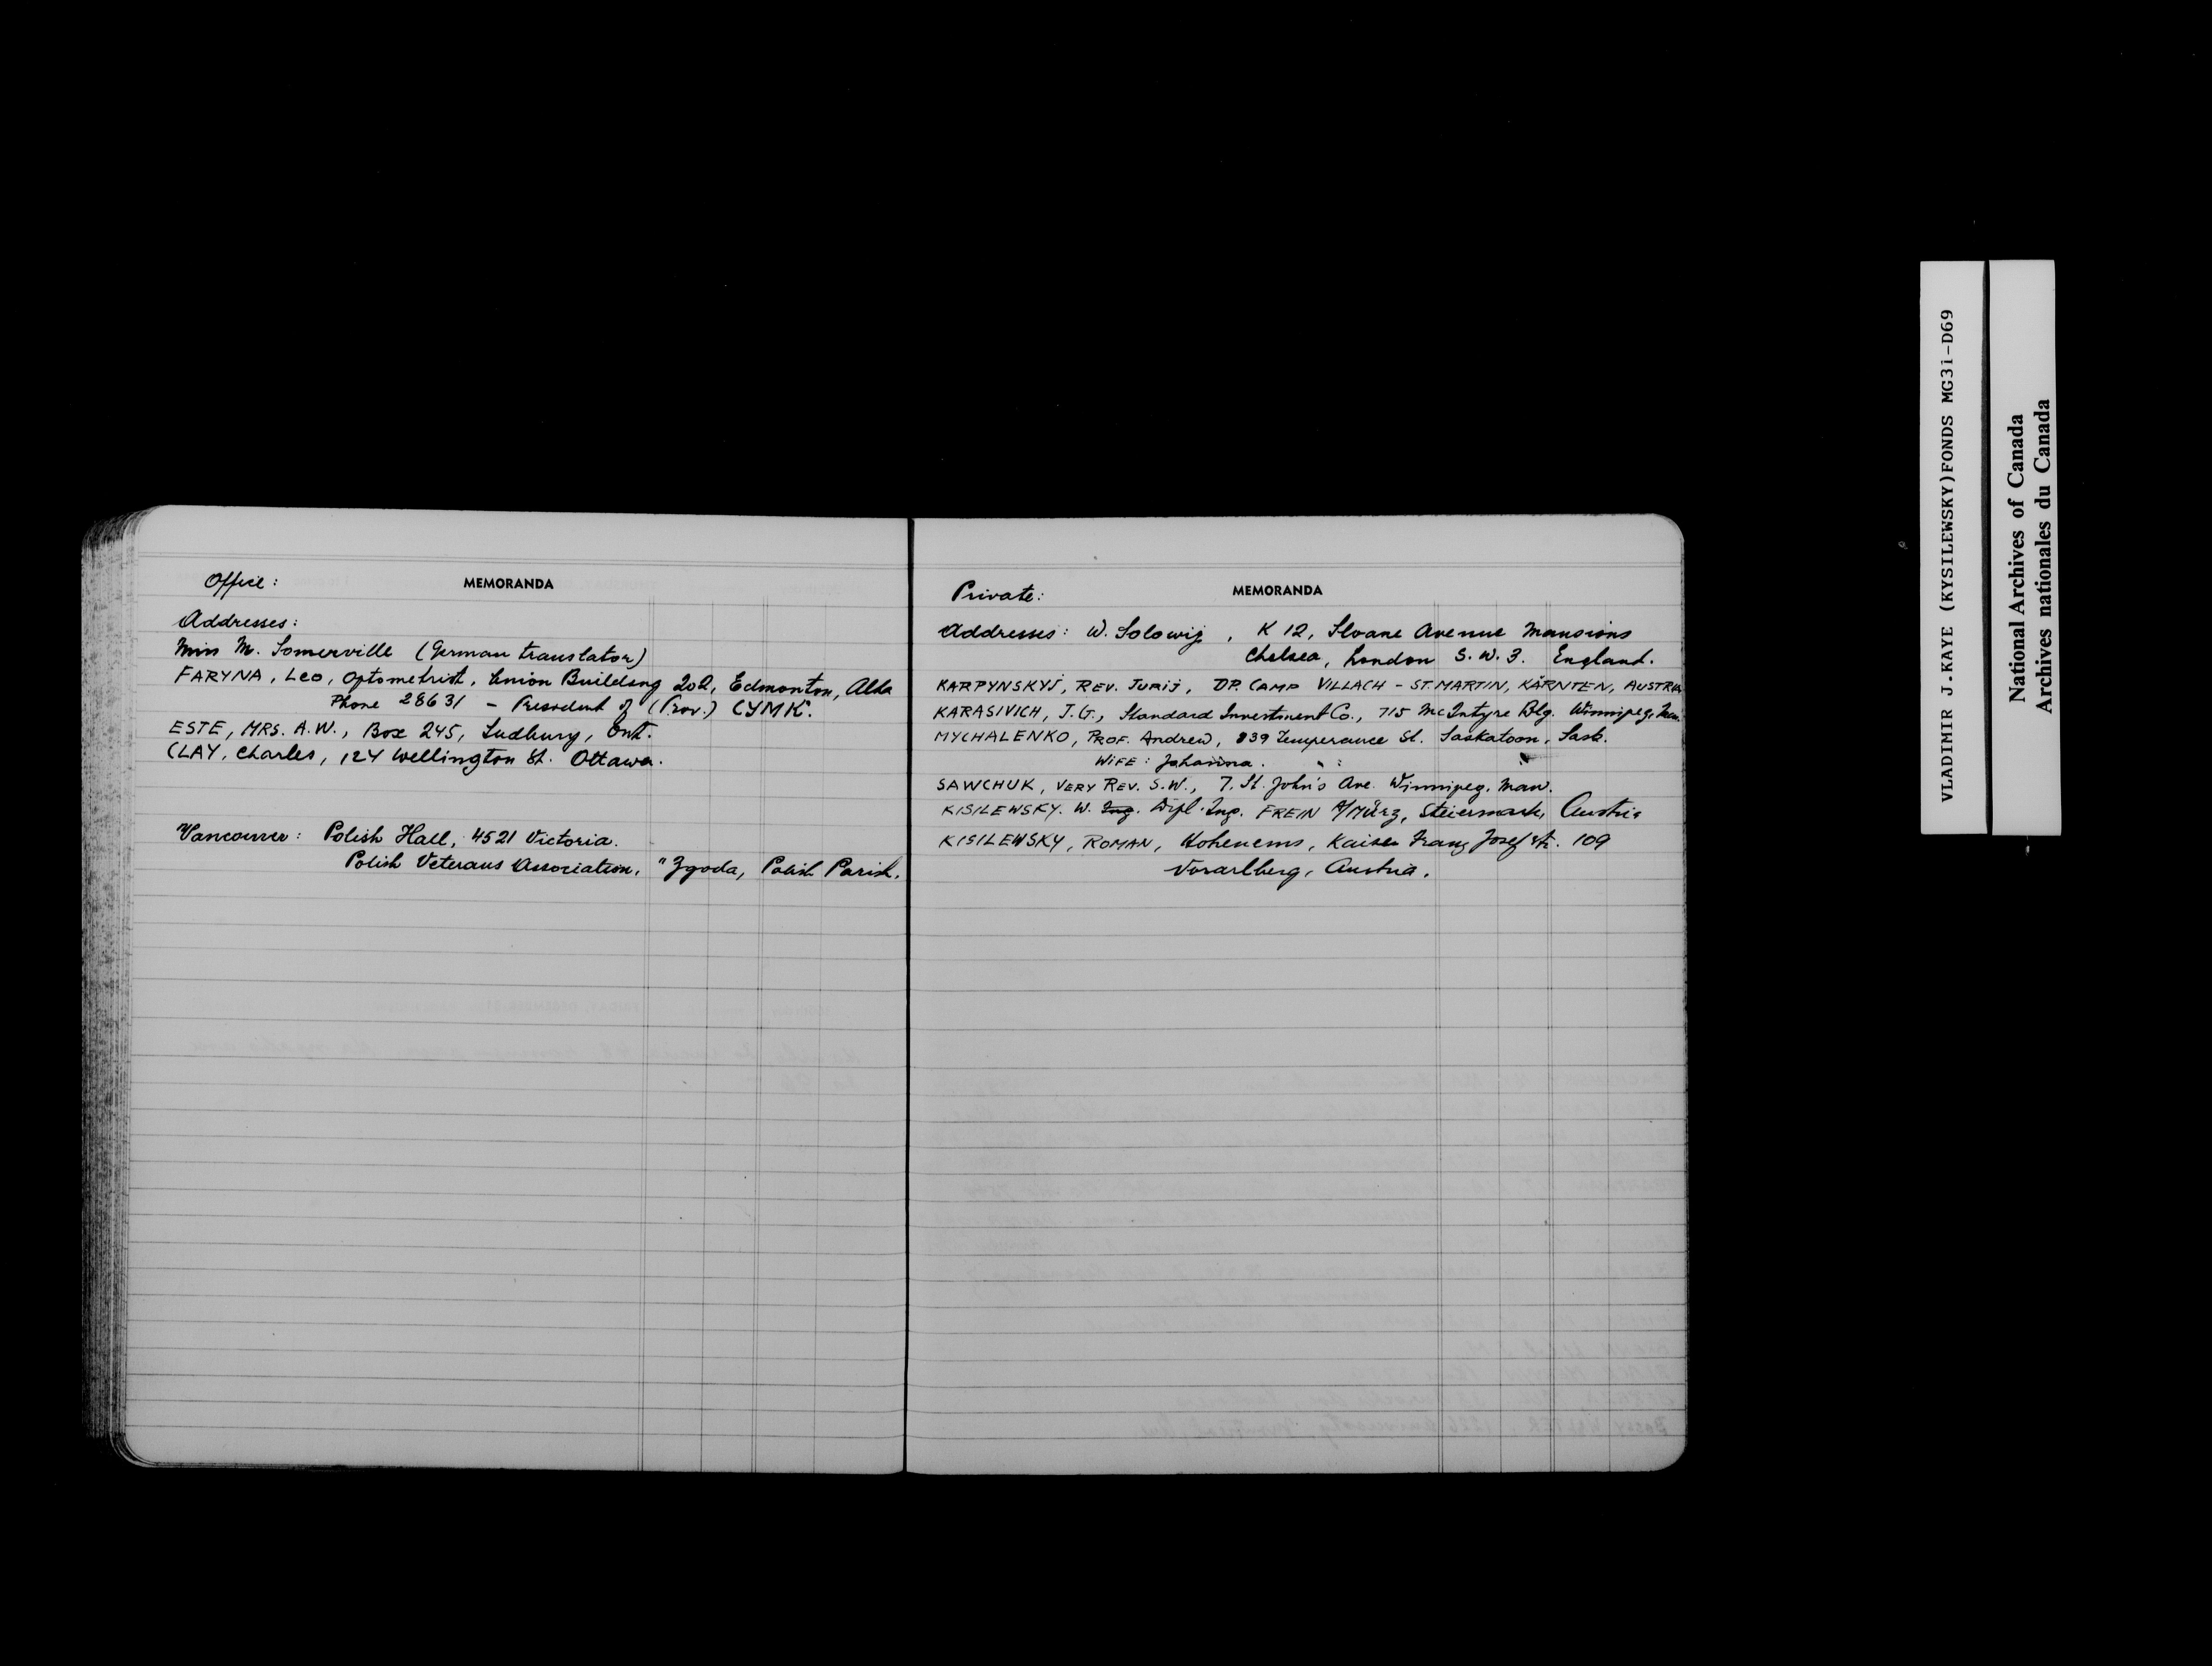 Office:
MEMORANDA
Addresses:
Miss M. Somerville (German translator)
FARYNA, Leo, Optometrist, Union Building 202, Edmonton, Alta
Phone 28631 - President of (Prov.) CYMK.
ESTE, MRS. A.W., Box 245, Sudbury, Ont.
CLAY, Charles, 124 Wellington St. Ottawa.
Vancouver: Polish Hall, 4521 Victoria.
Polish Veterans Association, "Zgoda, Polish Parish.
Private:
MEMORANDA
Addresses: W. Solowij, K 12, Sloane Avenue Mansions
Chelsea, London S.W.3. England.
KARPYNSKYJ, REV. JURIJ, DP. CAMP VILLACH - ST. MARTIN, KÄRNTEN, AUSTRIA
KARASIVICH, J.G., Standard Investment Co., 715 McIntyre Blg. Winnipeg, Man.
MYCHALENKO, PROF. Andrew, 839 Temperance St. Saskatoon, Sask.
WIFE: Johanna. " :
SAWCHUK, VERY REV. S.W., 7. St. John's Ave. Winnipeg. Man.
KISILEWSKY. W. Ing. Dipl. Ing. FREIN A/MÜRZ, Steiermark, Austria
KISILEWSKY, ROMAN, Hohenems, Kaiser Franz Josef str. 109
Vorarlberg, Austria.
VLADIMIR J.KAYE (KYSILEWSKY)FONDS MG31-D69
National Archives of Canada
Archives nationales du Canada